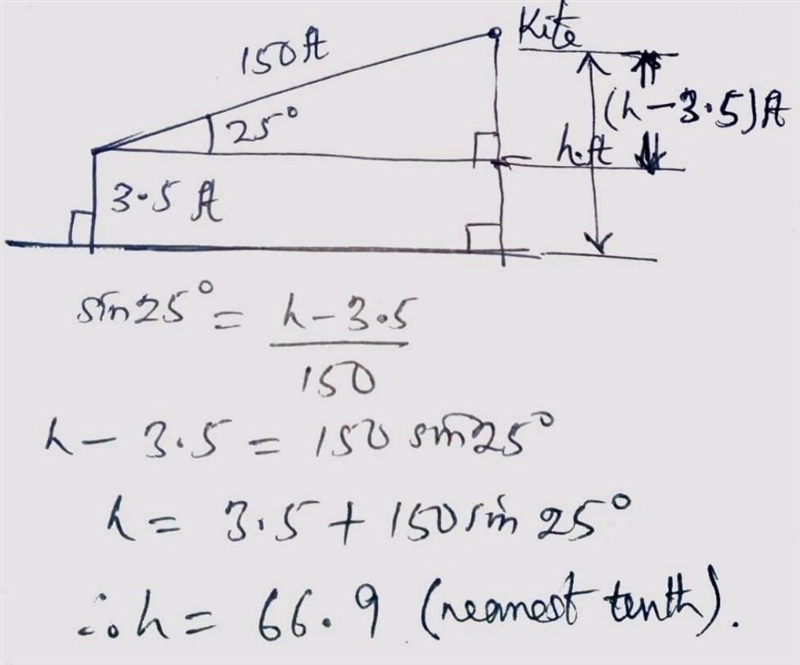 Kite
150ft
(h-3.5)ft
25°
h ft
3.5 ft
sin25° = h-3.5
150
h - 3.5 = 150 sin25°
h = 3.5 + 150 sin 25°
∴ h = 66.9 (nearest tenth).